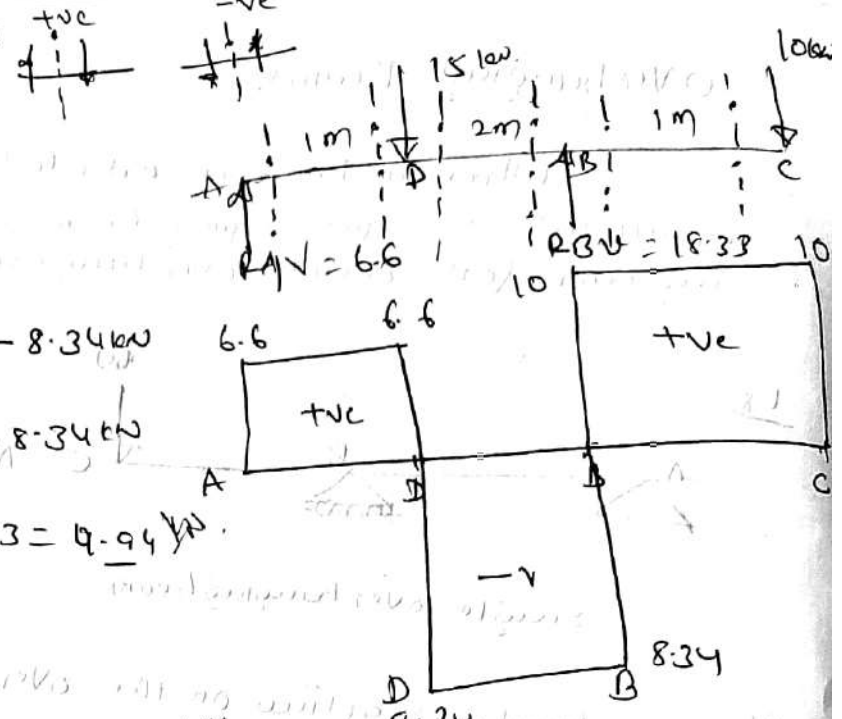 +ve -ve
15 kN 10kN
1m 2m 1m
A D B C
RAV = 6.6 RBV = 18.33
10 10
- 8.34kN 6.6 6.6
+ve +ve
8.34 kN
A D B C
3 = 9.94 kN.
- v
8.34
D B